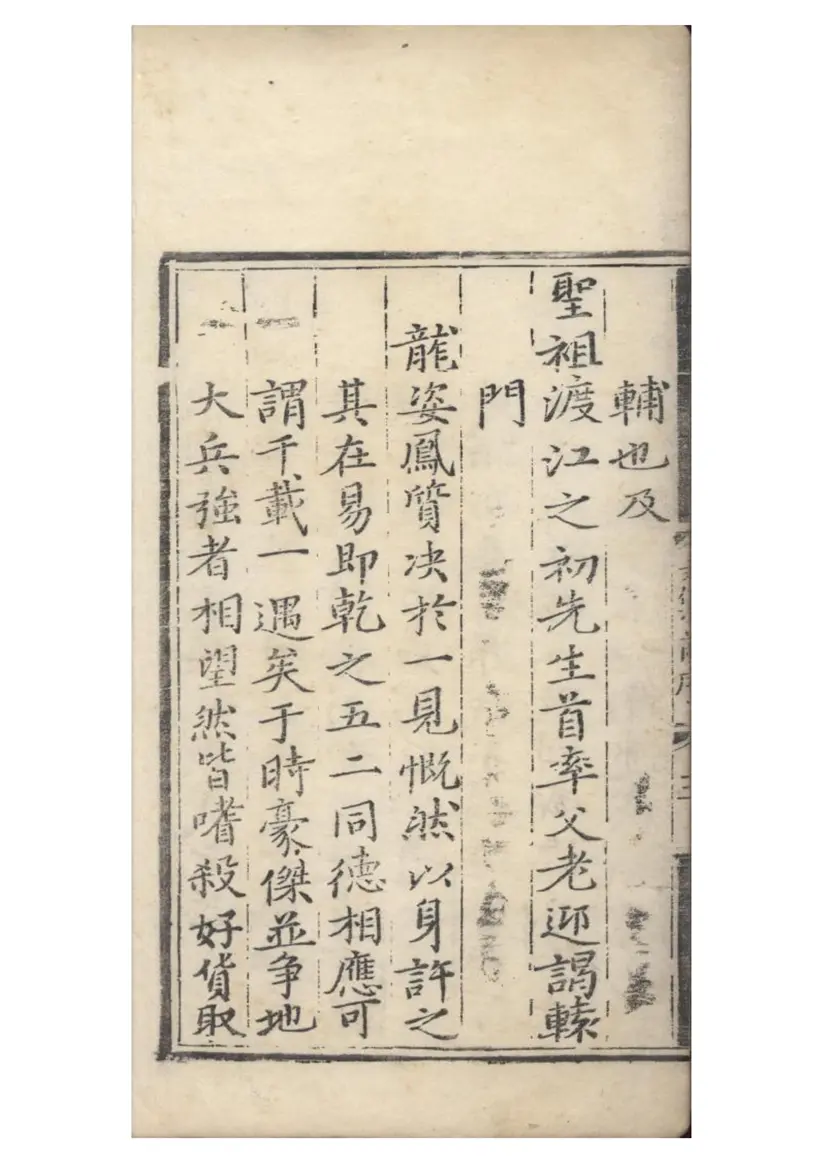 輔也及
聖祖渡江之初先生首率父老迎謁轅
門
龍姿鳳質決於一見慨然以身許之
其在易即乾之五二同德相應可
謂千載一遇矣于時豪傑並爭地
大兵強者相望然皆嗜殺好貨取